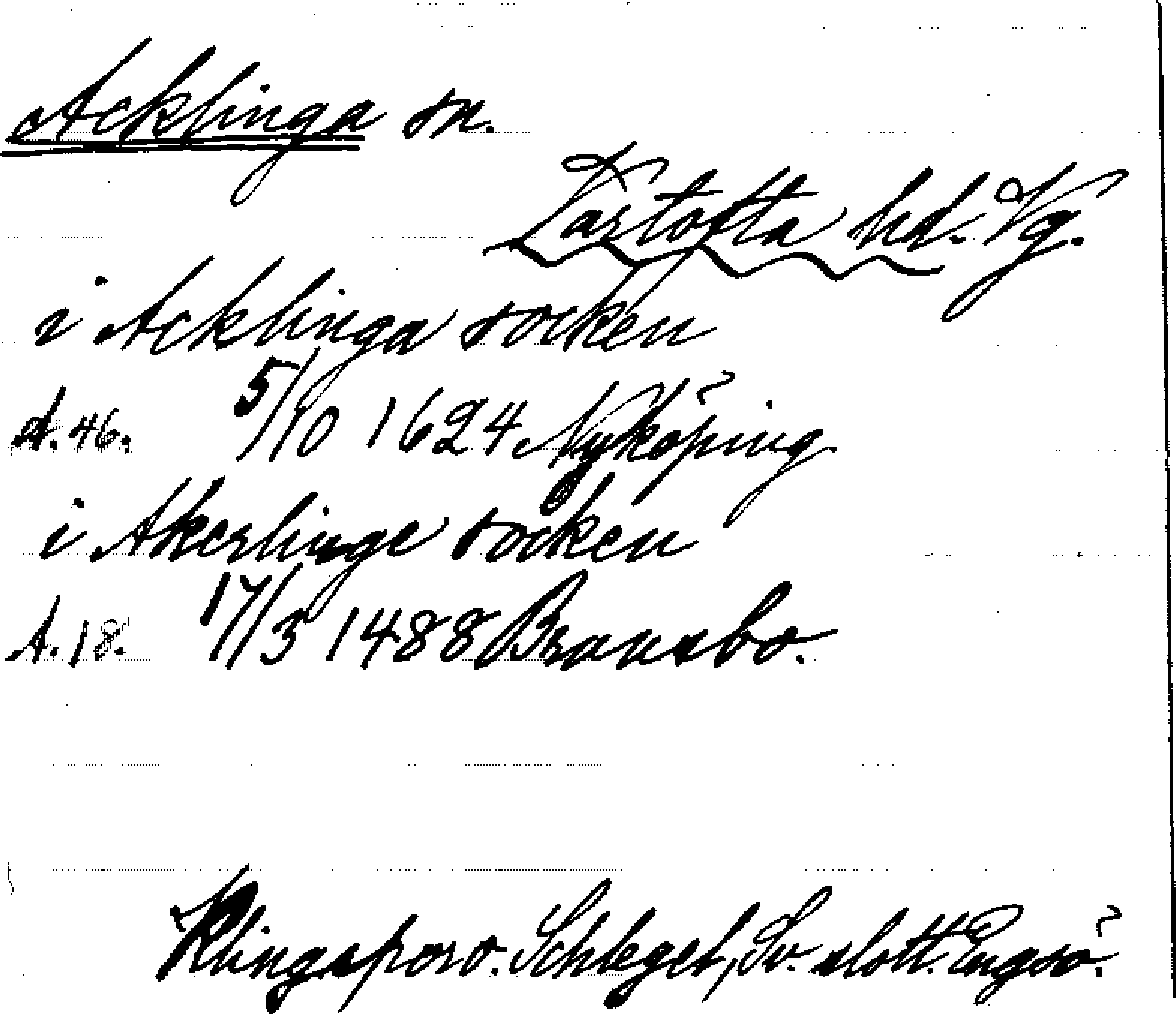 Acklinga sn.
Vartofta hd. Vg.
i Acklinga socken
A. 46. 5/10 1624 Nyköping
i Akerlinge socken
A. 18. 17/3 1488 Bransbo.
Klingspor o. Schlegel, Sv. slott. Engsö.